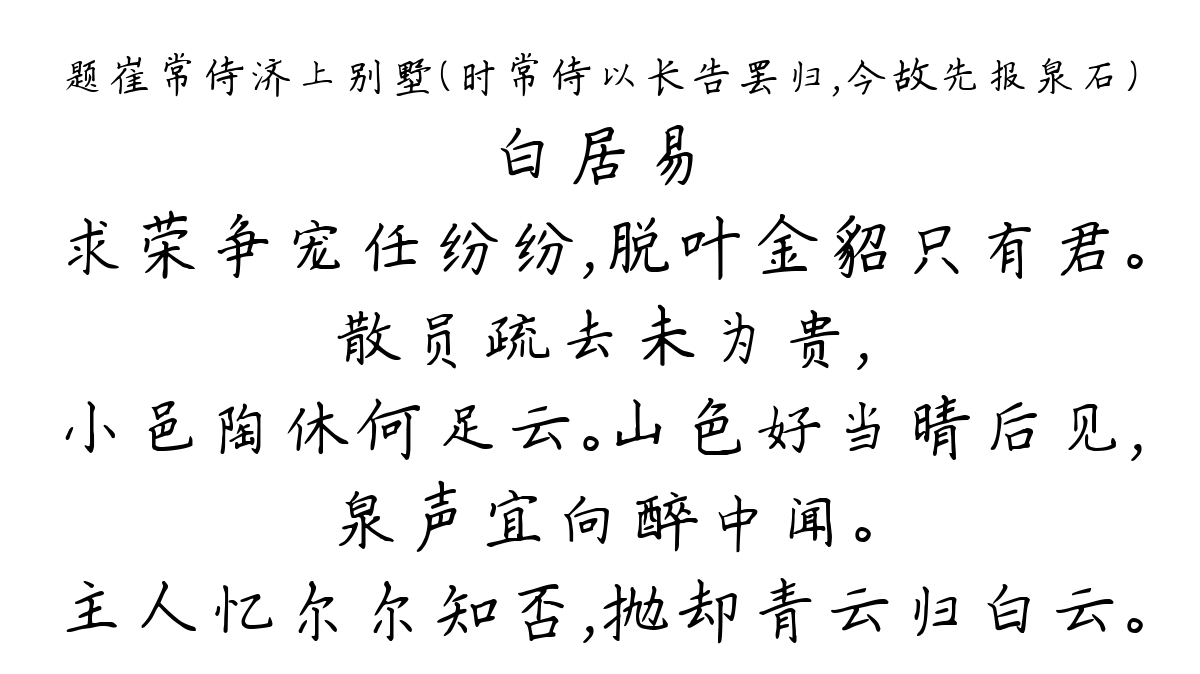 题崔常侍济上别墅(时常侍以长告罢归,今故先报泉石)
白居易
求荣争宠任纷纷,脱叶金貂只有君。
散员疏去未为贵,
小邑陶休何足云。山色好当晴后见,
泉声宜向醉中闻。
主人忆尔尔知否,抛却青云归白云。